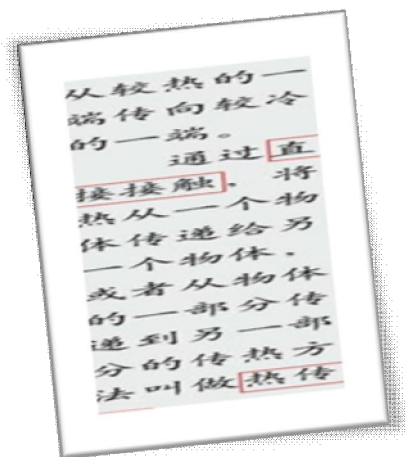 从较热的一
端传向较冷
的一端。
通过直
接接触，将
热从一个物
体传递给另
一个物体，
或者从物体
的一部分传
递到另一部
分的传热方
法叫做热传